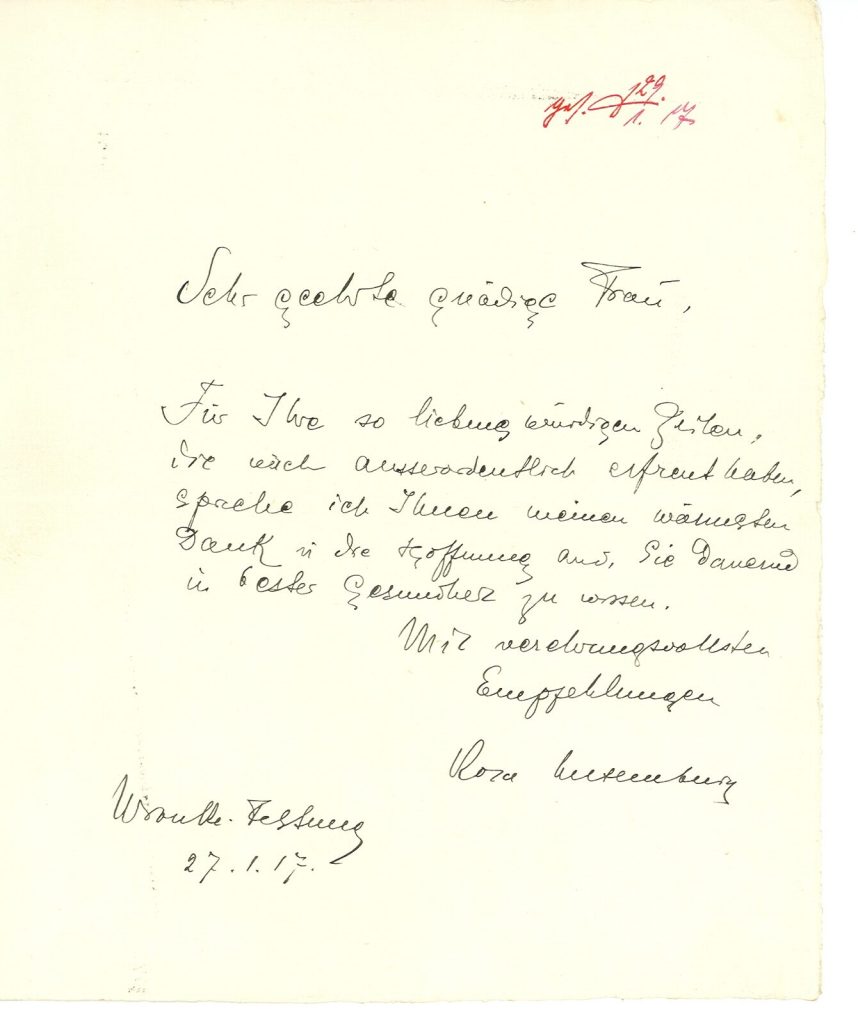 ges. 29.
1. 17
Sehr geehrte gnädige Frau,
Für Ihre so liebenswürdigen Zeilen,
die mich ausserordentlich erfreut haben,
spreche ich Ihnen meinen wärmsten
Dank u die Hoffnung aus, Sie dauernd
in bester Gesundheit zu wissen.
Mit verehrungsvollsten
Empfehlungen
Rosa Luxemburg
Wronke-Festung
27.1.17.